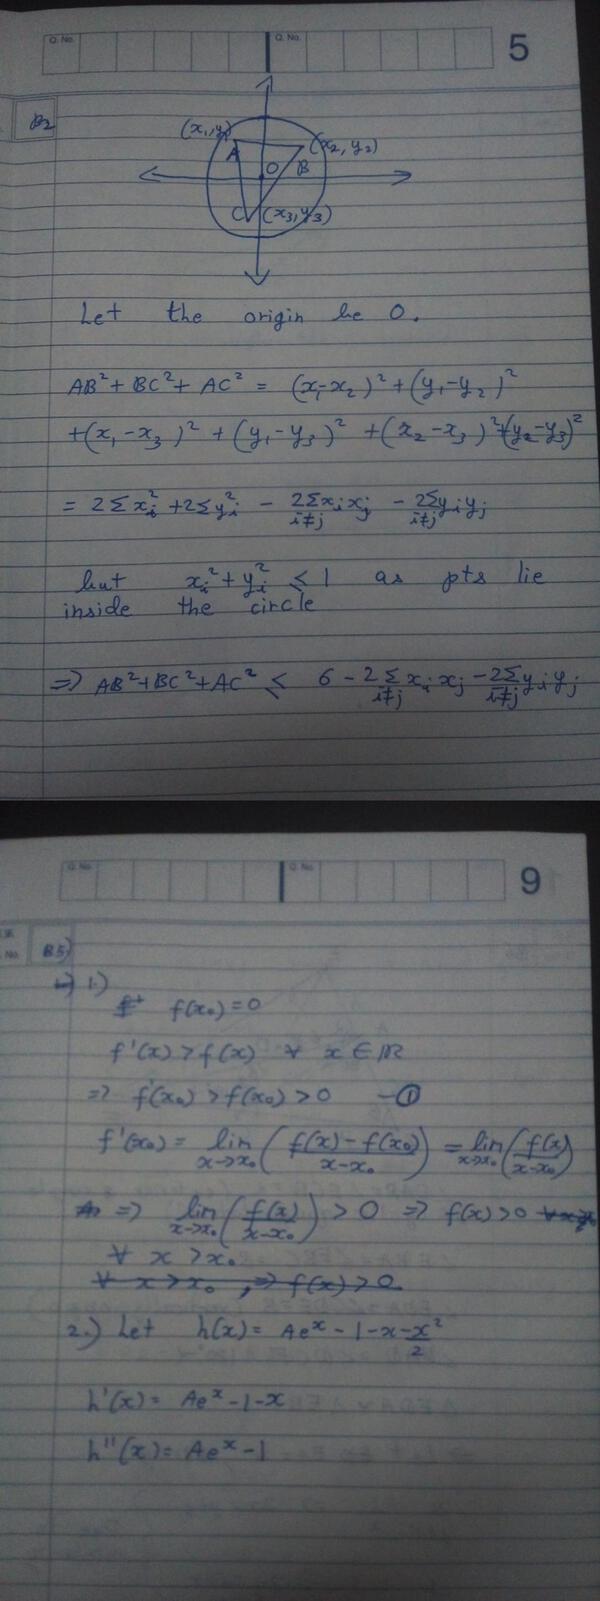 Q. No.
Q. No.
5
B2
(x₁,y₁)
(x₂, y₂)
A
O
B
C (x₃,y₃)
Let the origin be O.
AB² + BC² + AC² = (x₁-x₂)² + (y₁-y₂)²
+(x₁-x₃)² + (y₁-y₃)² + (x₂-x₃)² + (y₂-y₃)²
= 2Σxᵢ² + 2Σyᵢ² - 2Σxᵢxⱼ - 2Σyᵢyⱼ
i≠j i≠j
but xᵢ² + yᵢ² ≤ 1 as pts lie
inside the circle
=> AB²+BC²+AC² ≤ 6 - 2Σxᵢxⱼ - 2Σyᵢyⱼ
i≠j i≠j
Q. No.
Q. No.
9
No.
B5)
1.)
f(x₀) = 0
f'(x) > f(x) ∀ x ∈ ℝ
=> f'(x₀) > f(x₀) > 0 — ①
f'(x₀) = lim x→x₀ ( (f(x) - f(x₀))/(x-x₀) ) = lim x→x₀ ( f(x)/(x-x₀) )
=> lim x→x₀ ( f(x)/(x-x₀) ) > 0 => f(x) > 0
∀ x > x₀
∀ x > x₀, => f(x) > 0
2.) Let h(x) = Aeˣ - 1 - x - x²/2
h'(x) = Aeˣ - 1 - x
h''(x) = Aeˣ - 1